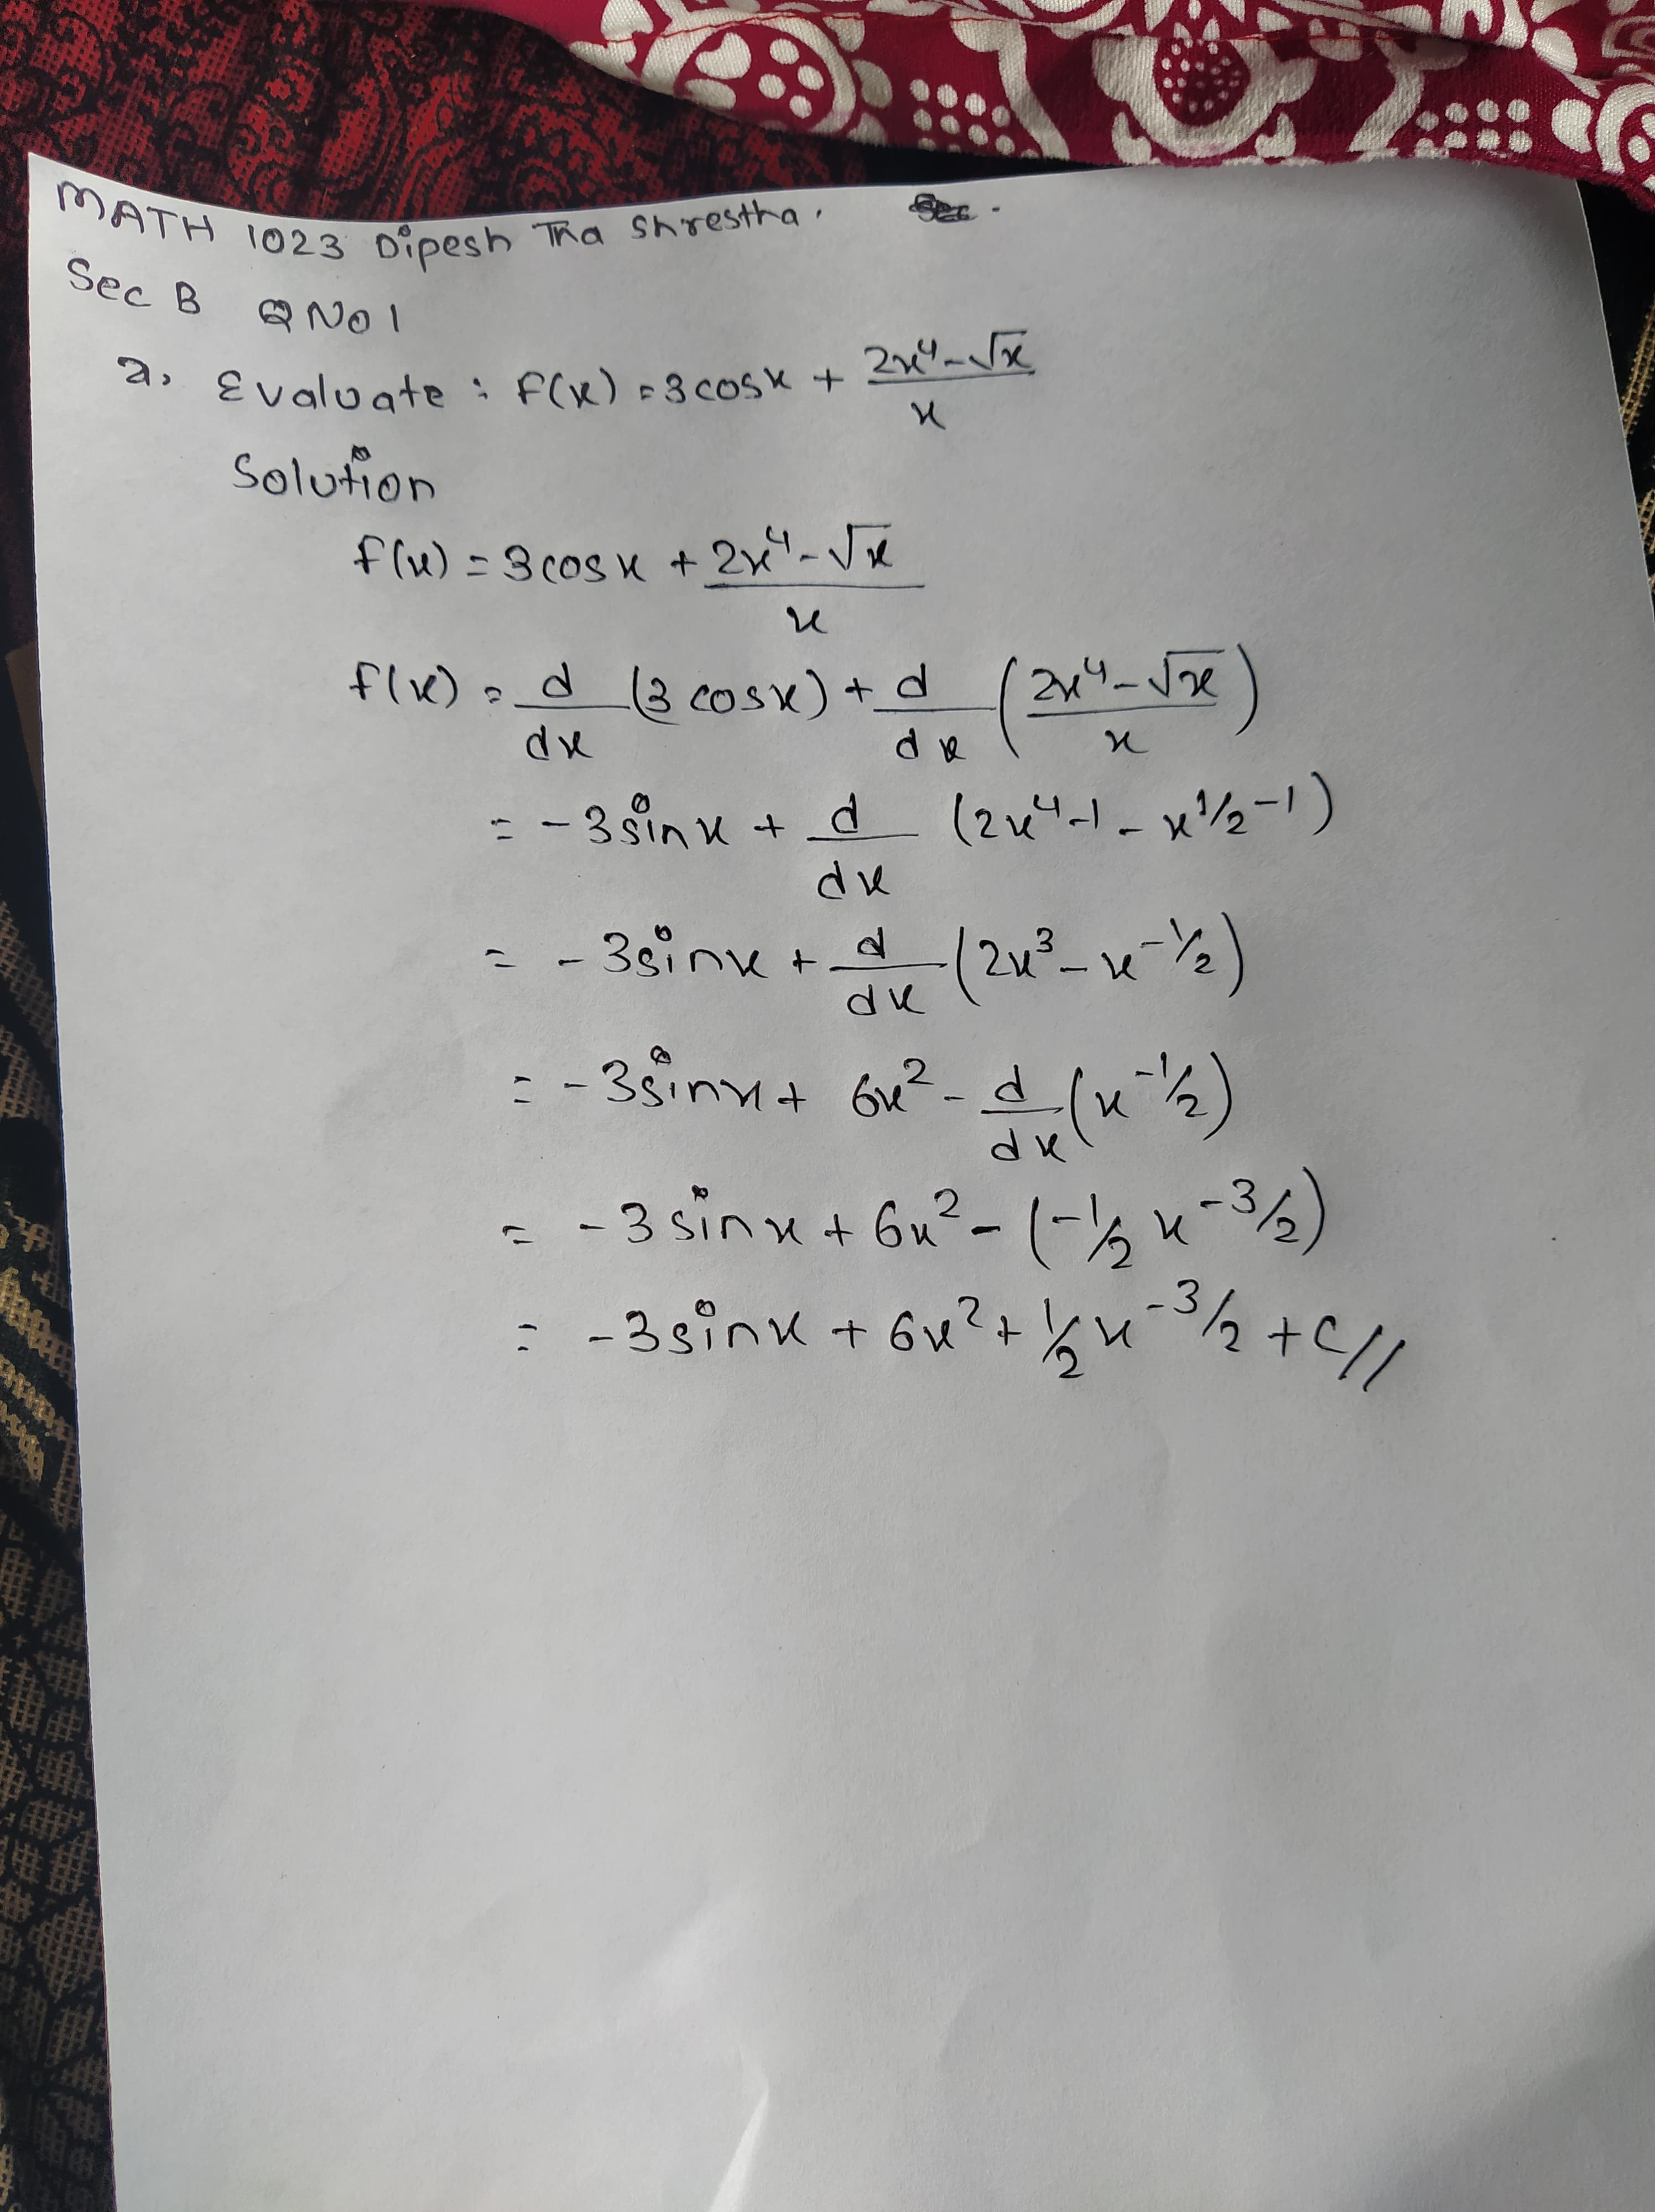 MATH 1023 Dipesh Tha Shrestha.
Sec B QNo1
a. Evaluate : f(x) = 3cosx + (2x⁴-√x)/x
Solution
f(x) = 3cosx + (2x⁴-√x)/x
f(x) = d/dx (3cosx) + d/dx ((2x⁴-√x)/x)
= -3sinx + d/dx (2x⁴⁻¹ - x^(1/2-1))
= -3sinx + d/dx (2x³ - x^(-1/2))
= -3sinx + 6x² - d/dx (x^(-1/2))
= -3sinx + 6x² - (-1/2 x^(-3/2))
= -3sinx + 6x² + 1/2 x^(-3/2) + c//